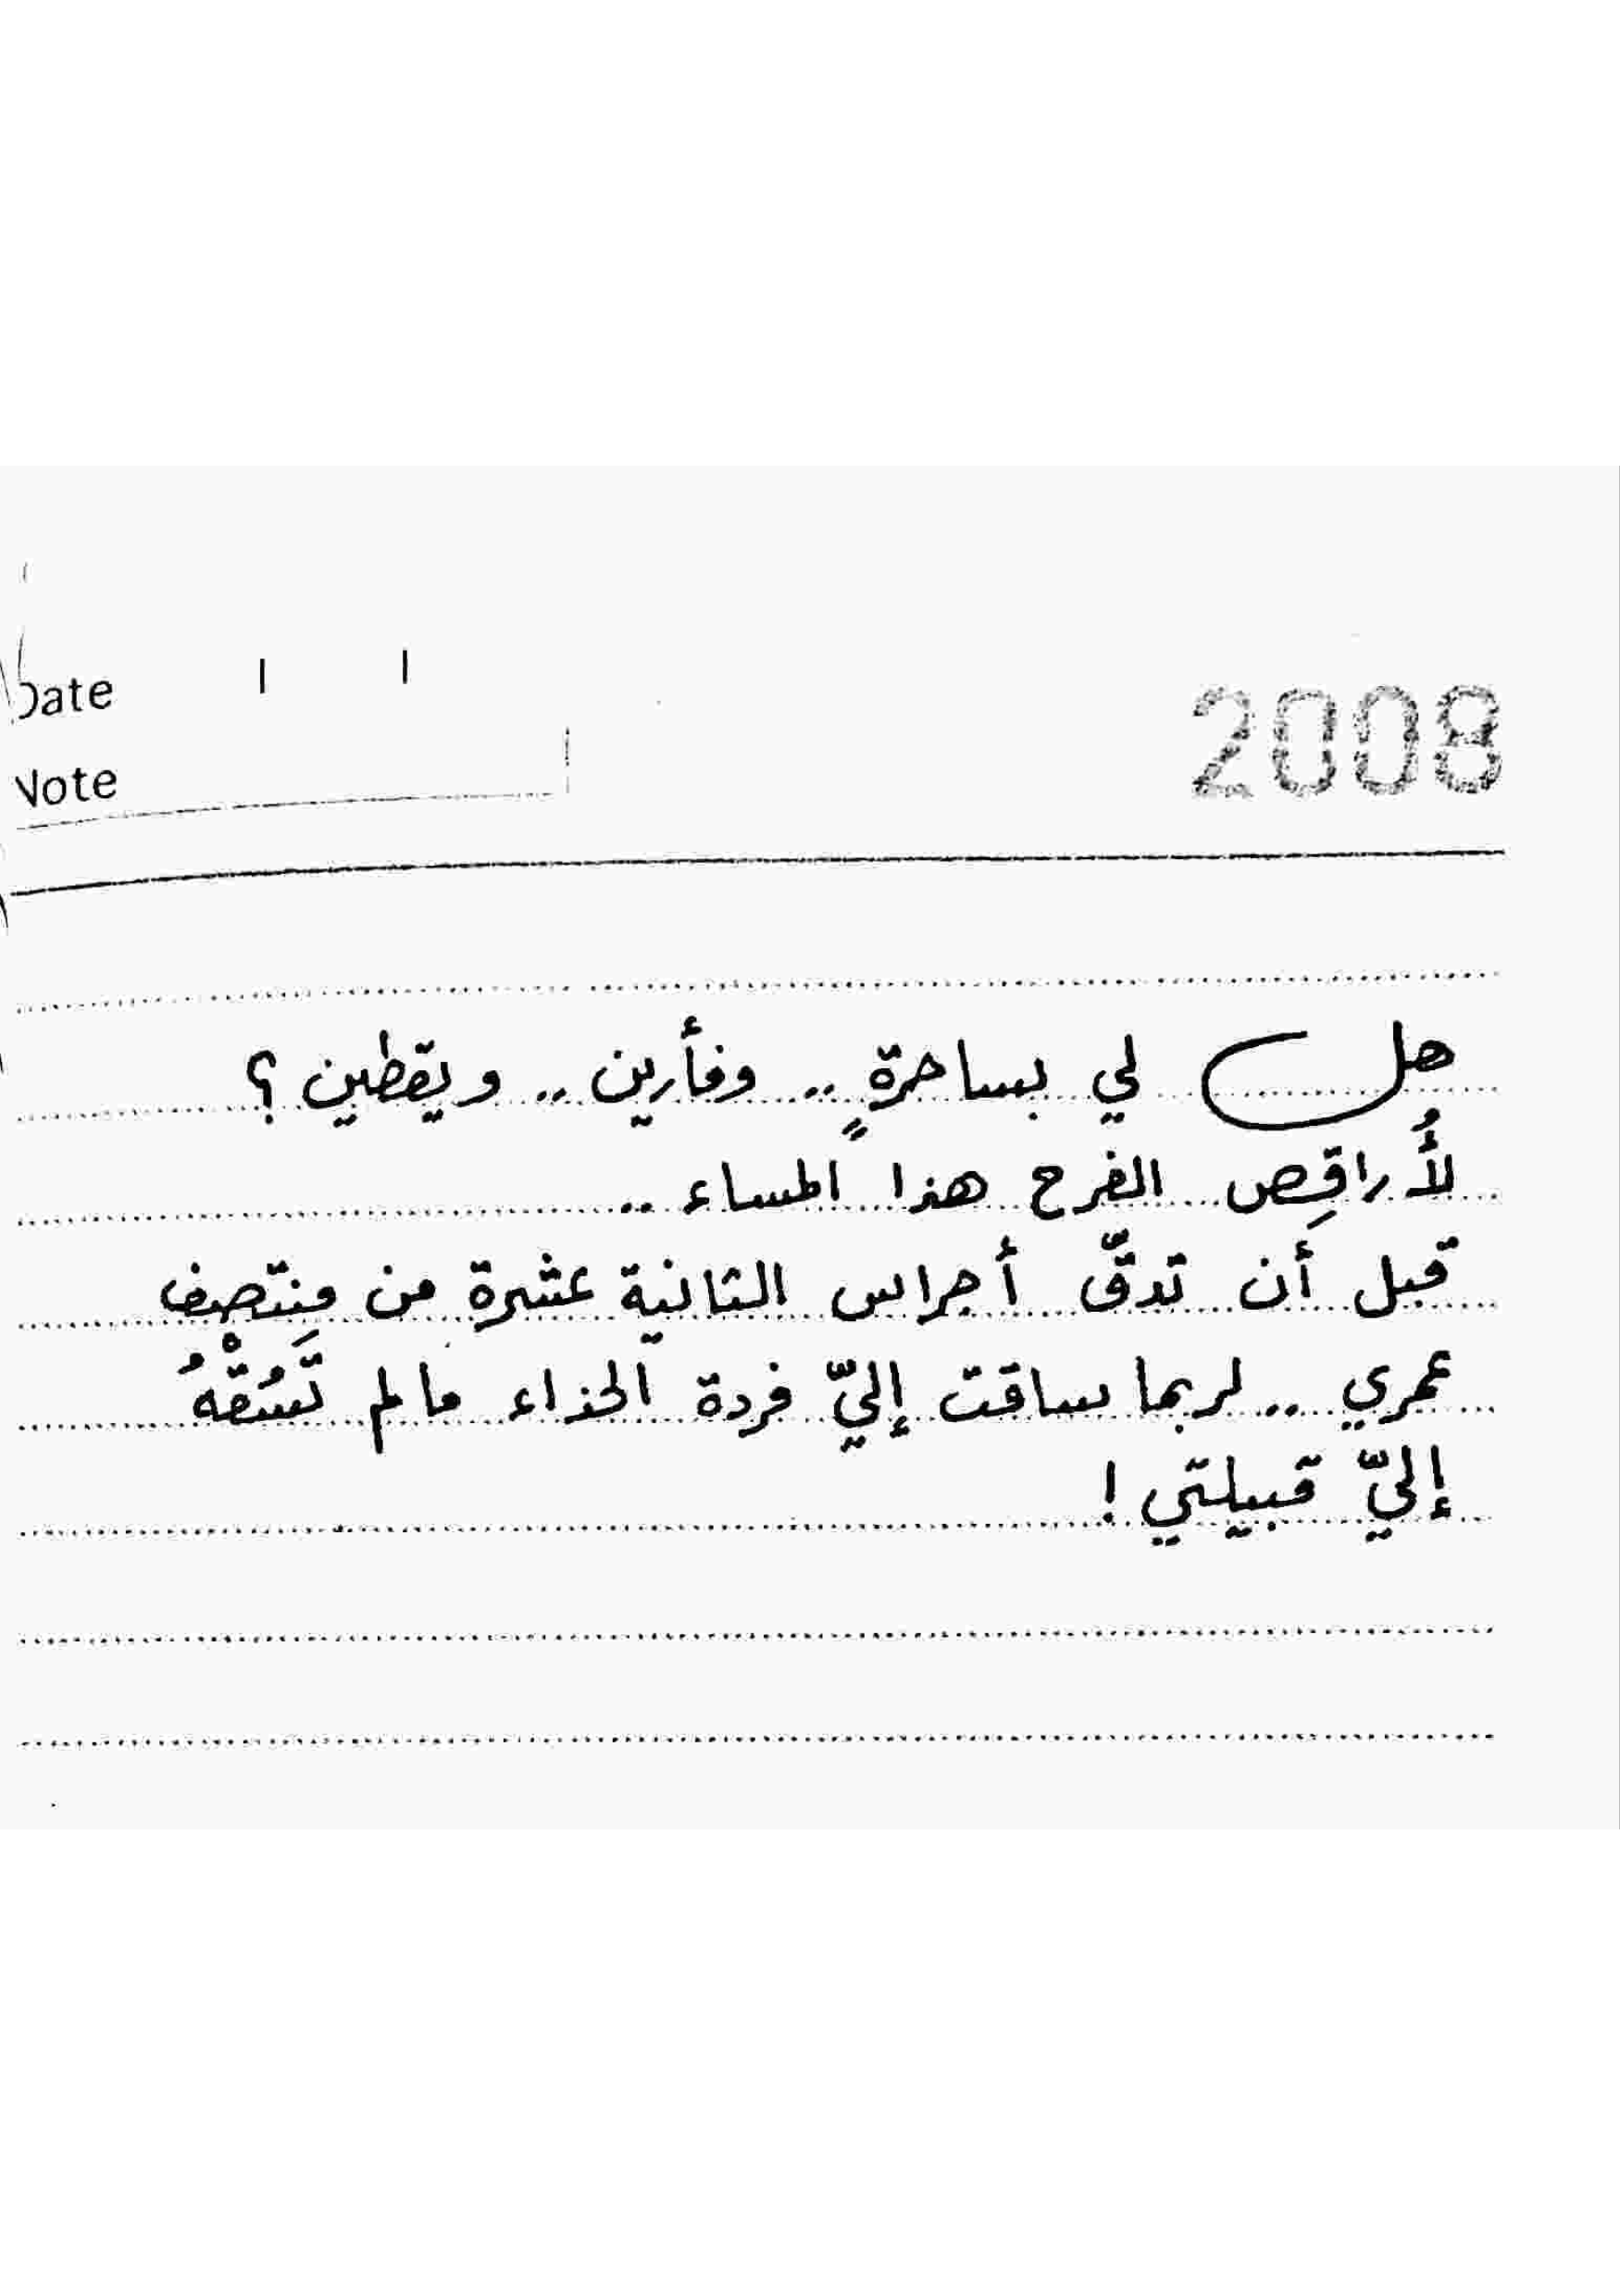 Date
2008
Note
هل لي بساحرةٍ .. وفأرين .. ويقطين ؟
لأُراقِص الفرح هذا المساء ..
قبل أن تدقّ أجراس الثانية عشرة من مِنتصِف
عمري .. لربما ساقت إليّ فردة الحذاء مالم تَسُقْهُ
إليّ قبيلتي !